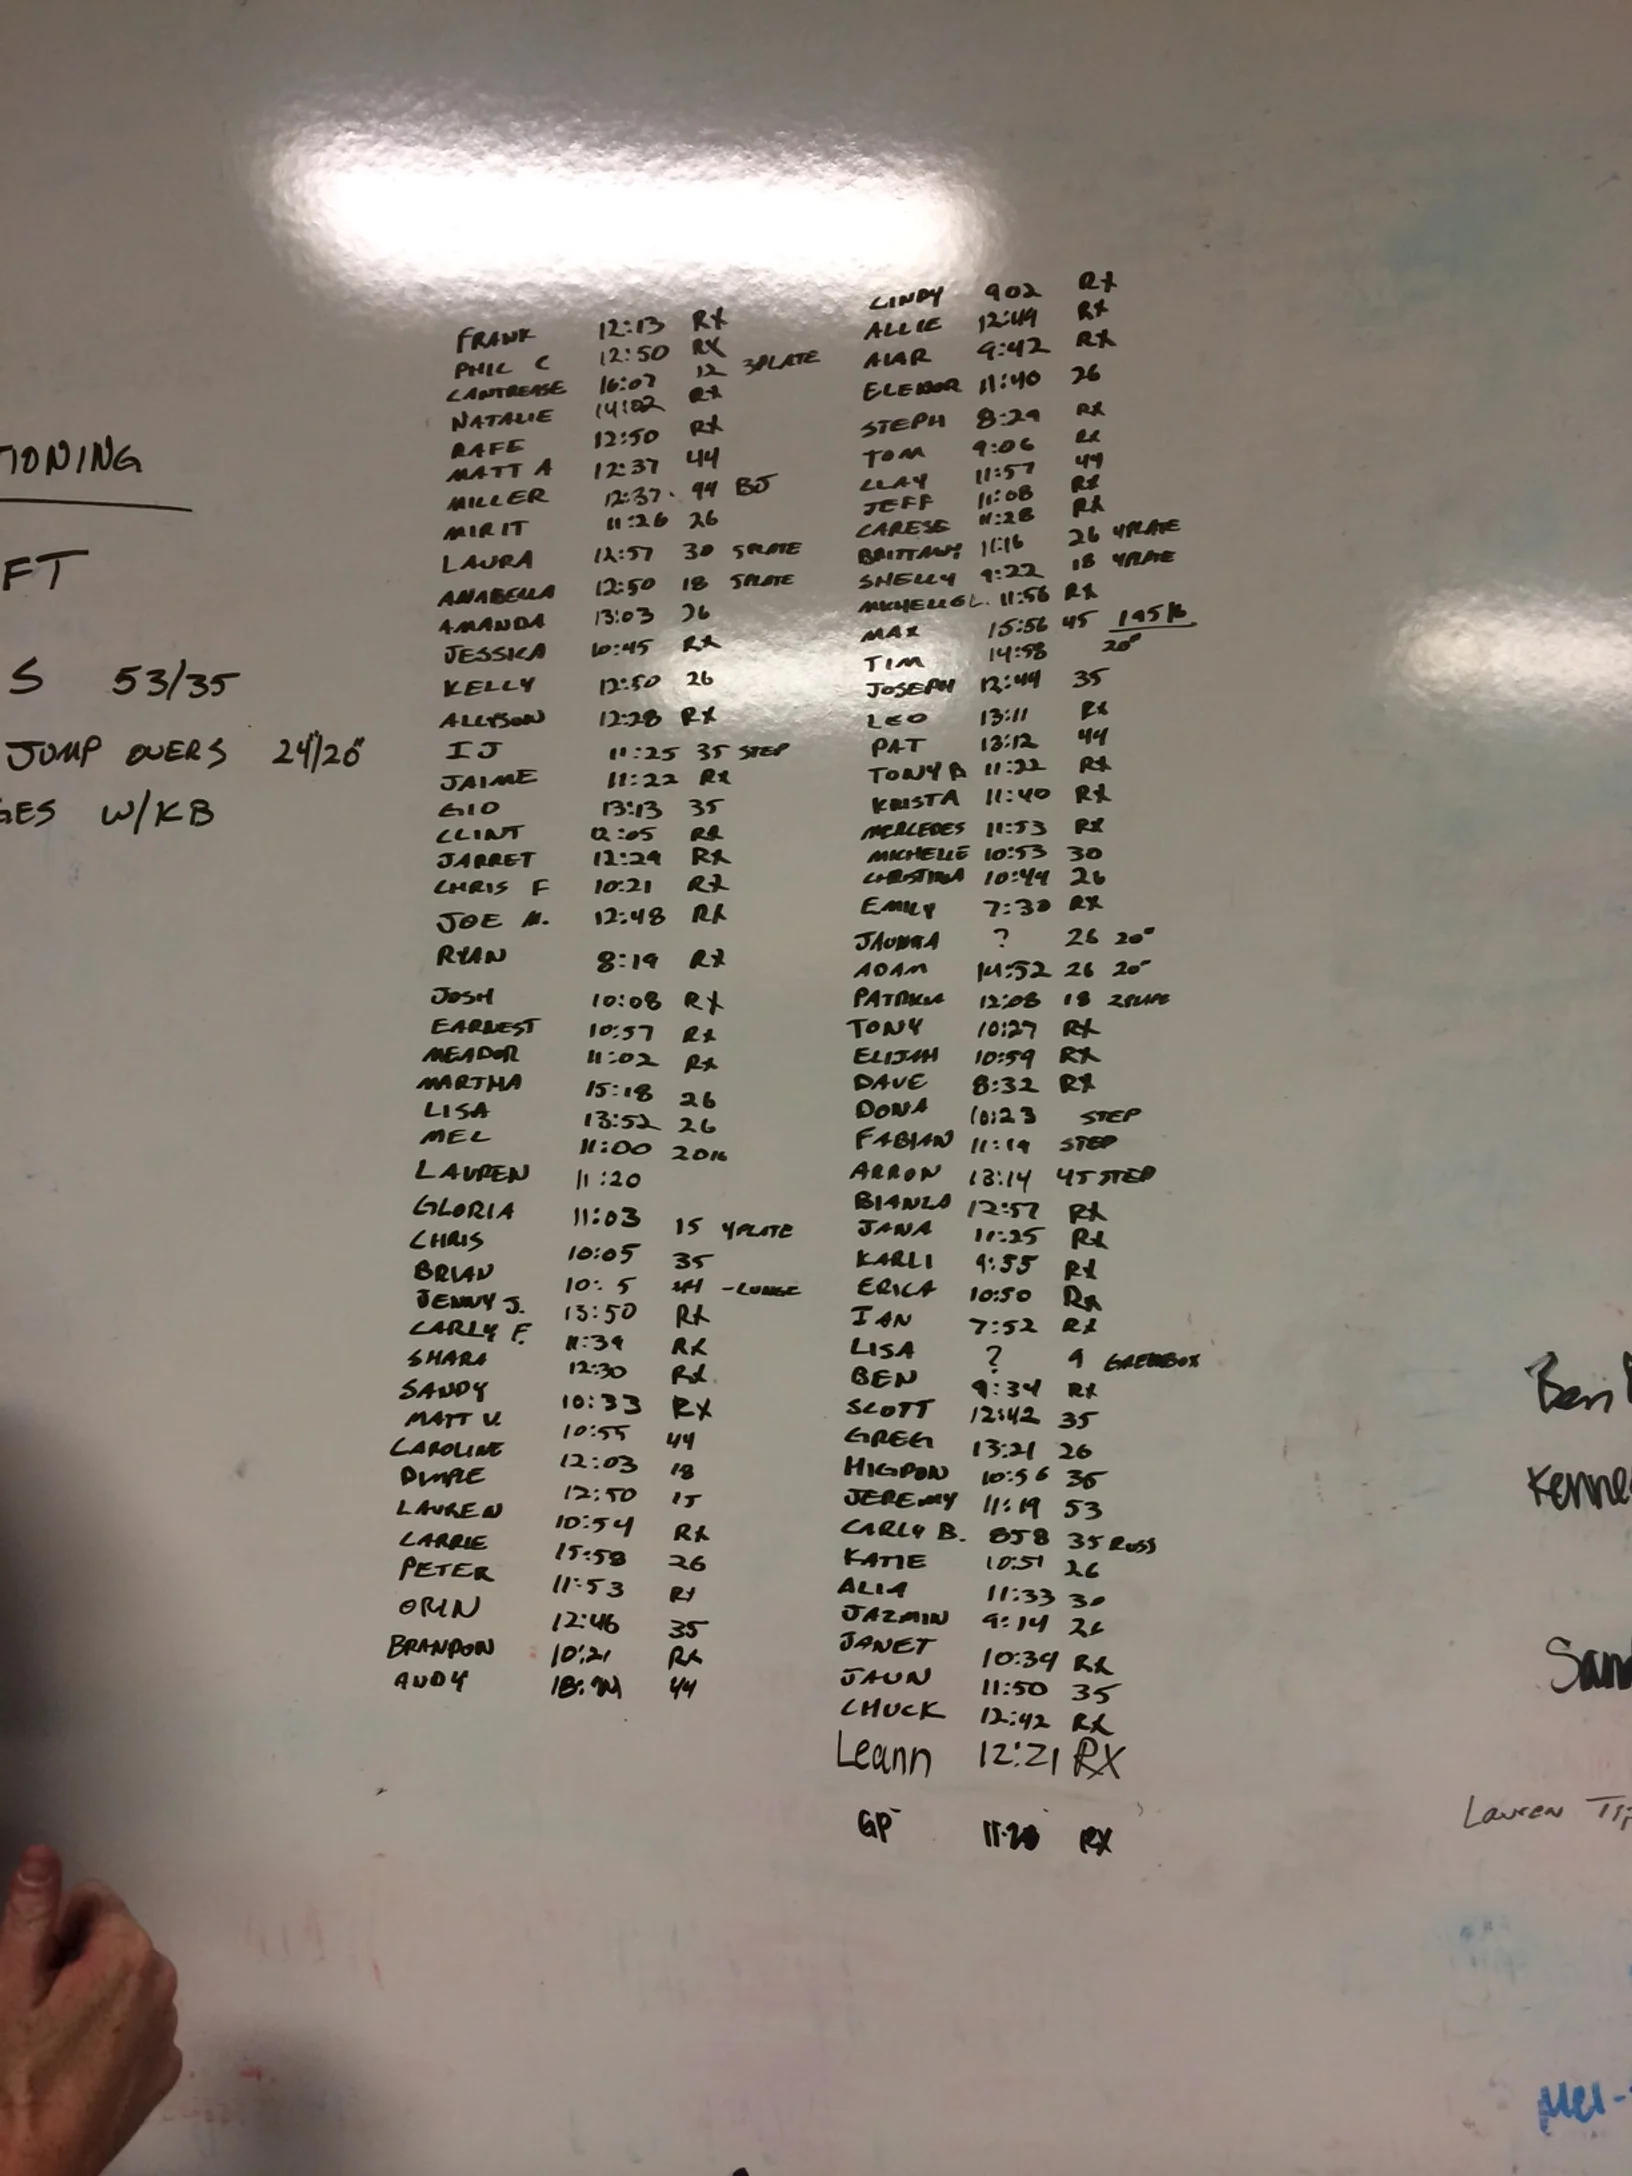 TIONING
FT
S 53/35
JUMP OVERS 24"/20"
GES W/KB
FRANK 12:13 RX
PHIL C 12:50 RX
CANTREASE 16:07 12 3PLATE
NATALIE 14:02 RX
RAFE 12:50 RX
MATT A 12:37 44
MILLER 12:37 44 BJ
MIRIT 11:26 26
LAURA 12:57 30 5PLATE
ANABELLA 12:50 18 5PLATE
AMANDA 13:03 26
JESSICA 10:45 RX
KELLY 12:50 26
ALLYSON 12:28 RX
IJ 11:25 35 STEP
JAIME 11:22 RX
GIO 13:13 35
CLINT 12:05 RX
JARRET 12:29 RX
CHRIS F 10:21 RX
JOE M. 12:48 RX
RYAN 8:19 RX
JOSH 10:08 RX
EARNEST 10:57 RX
MEADOR 11:02 RX
MARTHA 15:18 26
LISA 13:52 26
MEL 11:00 20
LAUREN 11:20
GLORIA 11:03 15 4PLATE
CHRIS 10:05 35
BRIAN 10: 5 44 -LUNGE
JENNY J. 13:50 RX
CARLY F. 11:39 RX
SHARA 12:30 RX
SANDY 10:33 RX
MATT V. 10:55 44
CAROLINE 12:03 18
DIMPLE 12:50 15
LAUREN 10:54 RX
CARRIE 15:58 26
PETER 11:53 RX
ORIN 12:46 35
BRANDON 10:21 RX
ANDY 44
CINDY 902 RX
ALLIE 12:49 RX
ALAR 9:42 RX
ELEANOR 11:40 26
STEPH 8:29 RX
TOM 9:06 RX
CLAY 11:57 44
JEFF 11:08 RX
CARESE 11:28 RX
BRITTANY 11:16 26 4PLATE
SHELLY 9:22 18 4PLATE
MICHELLE L. 11:56 RX
MAX 15:56 45 195lb
TIM 14:58 20"
JOSEPH 12:44 35
LEO 13:11 RX
PAT 13:12 44
TONY B 11:22 RX
KRISTA 11:40 RX
MERCEDES 11:53 RX
MICHELLE 10:53 30
CHRISTINA 10:44 26
EMILY 7:30 RX
JAUNITA ? 26 20"
ADAM 14:52 26 20"
PATRICIA 12:08 18 2PLATE
TONY 10:27 RX
ELIJAH 10:59 RX
DAVE 8:32 RX
DONA 10:23 STEP
FABIAN 11:19 STEP
ARRON 13:14 45 STEP
BIANCA 12:57 RX
JANA 11:25 RX
KARLI 9:55 RX
ERICA 10:50 RX
IAN 7:52 RX
LISA ? 9 GREENBOX
BEN 9:34 RX
SCOTT 12:42 35
GREG 13:21 26
HIGDON 10:56 35
JEREMY 11:19 53
CARLY B. 858 35 RUSS
KATIE 10:51 26
ALIA 11:33 30
JAZMIN 9:14 26
JANET 10:39 RX
JAUN 11:50 35
CHUCK 12:42 RX
Leann 12:21 RX
GP RX
Ben
Kenne
San
Lauren
Mel-